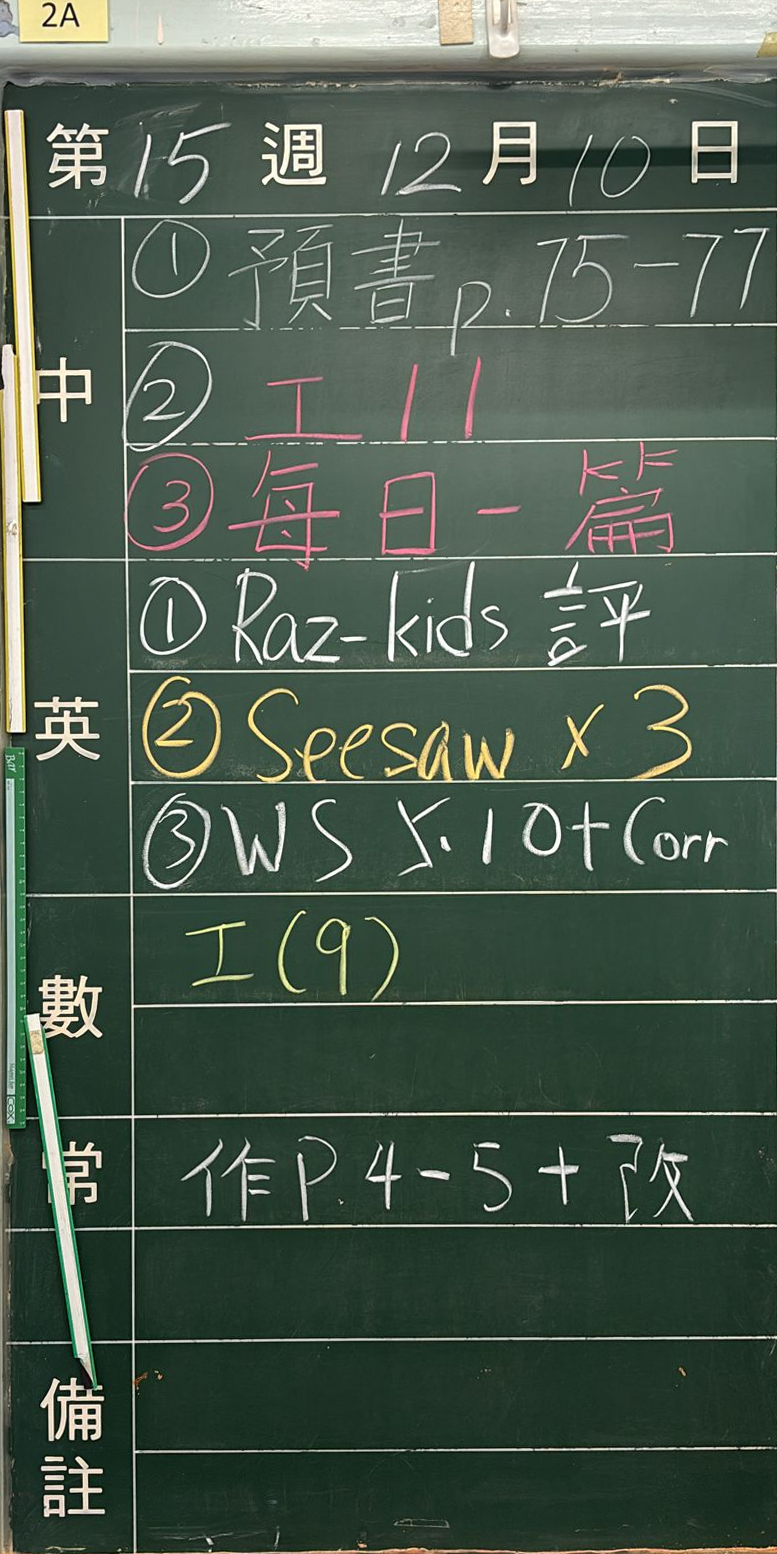 2A
第 15 週 12 月 10 日
中
① 預書 p.75-77
② 工 11
③ 每日一篇
英
① Raz-kids 評
② Seesaw x 3
③ WS 5.10 + Corr
數
工(9)
常
作P.4-5 + 改
備註